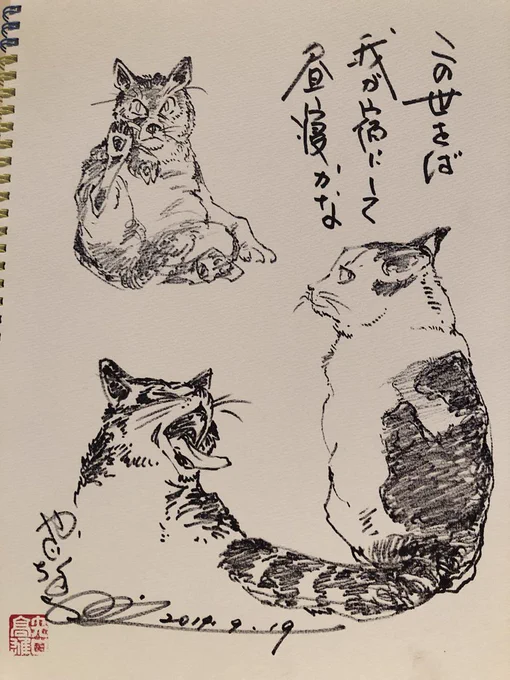 この世をば
我が宿にして
昼寝かな
2019.9.19